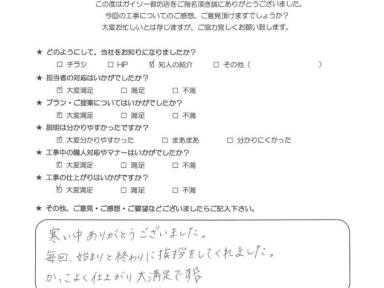 この度はガイソー都筑店をご指名頂き誠にありがとうございました。
今回の工事についてのご感想、ご意見頂けますでしょうか?
大変お忙しいとは存じますが、ご協力宜しくお願い致します。
★ どのようにして、当社をお知りになりましたか?
□ チラシ □ HP ☑ 知人の紹介 □ その他 ( )
★ 担当者の対応はいかがでしたか?
☑ 大変満足 □ 満足 □ 不満
★ プラン・ご提案についてはいかがでしたか?
☑ 大変満足 □ 満足 □ 不満
★ 説明は分かりやすかったですか?
☑ 大変分かりやすかった □ まあまあ □ 分かりにくかった
★ 工事中の職人対応やマナーはいかがでしたか?
☑ 大変満足 □ 満足 □ 不満
★ 工事の仕上がりはいかがですか?
☑ 大変満足 □ 満足 □ 不満
★ その他、ご意見・ご感想・ご要望などございましたらご記入下さい。
寒い中ありがとうございました。
毎回、始まりと終わりに挨拶をしてくれました。
かっこよく仕上がり大満足です